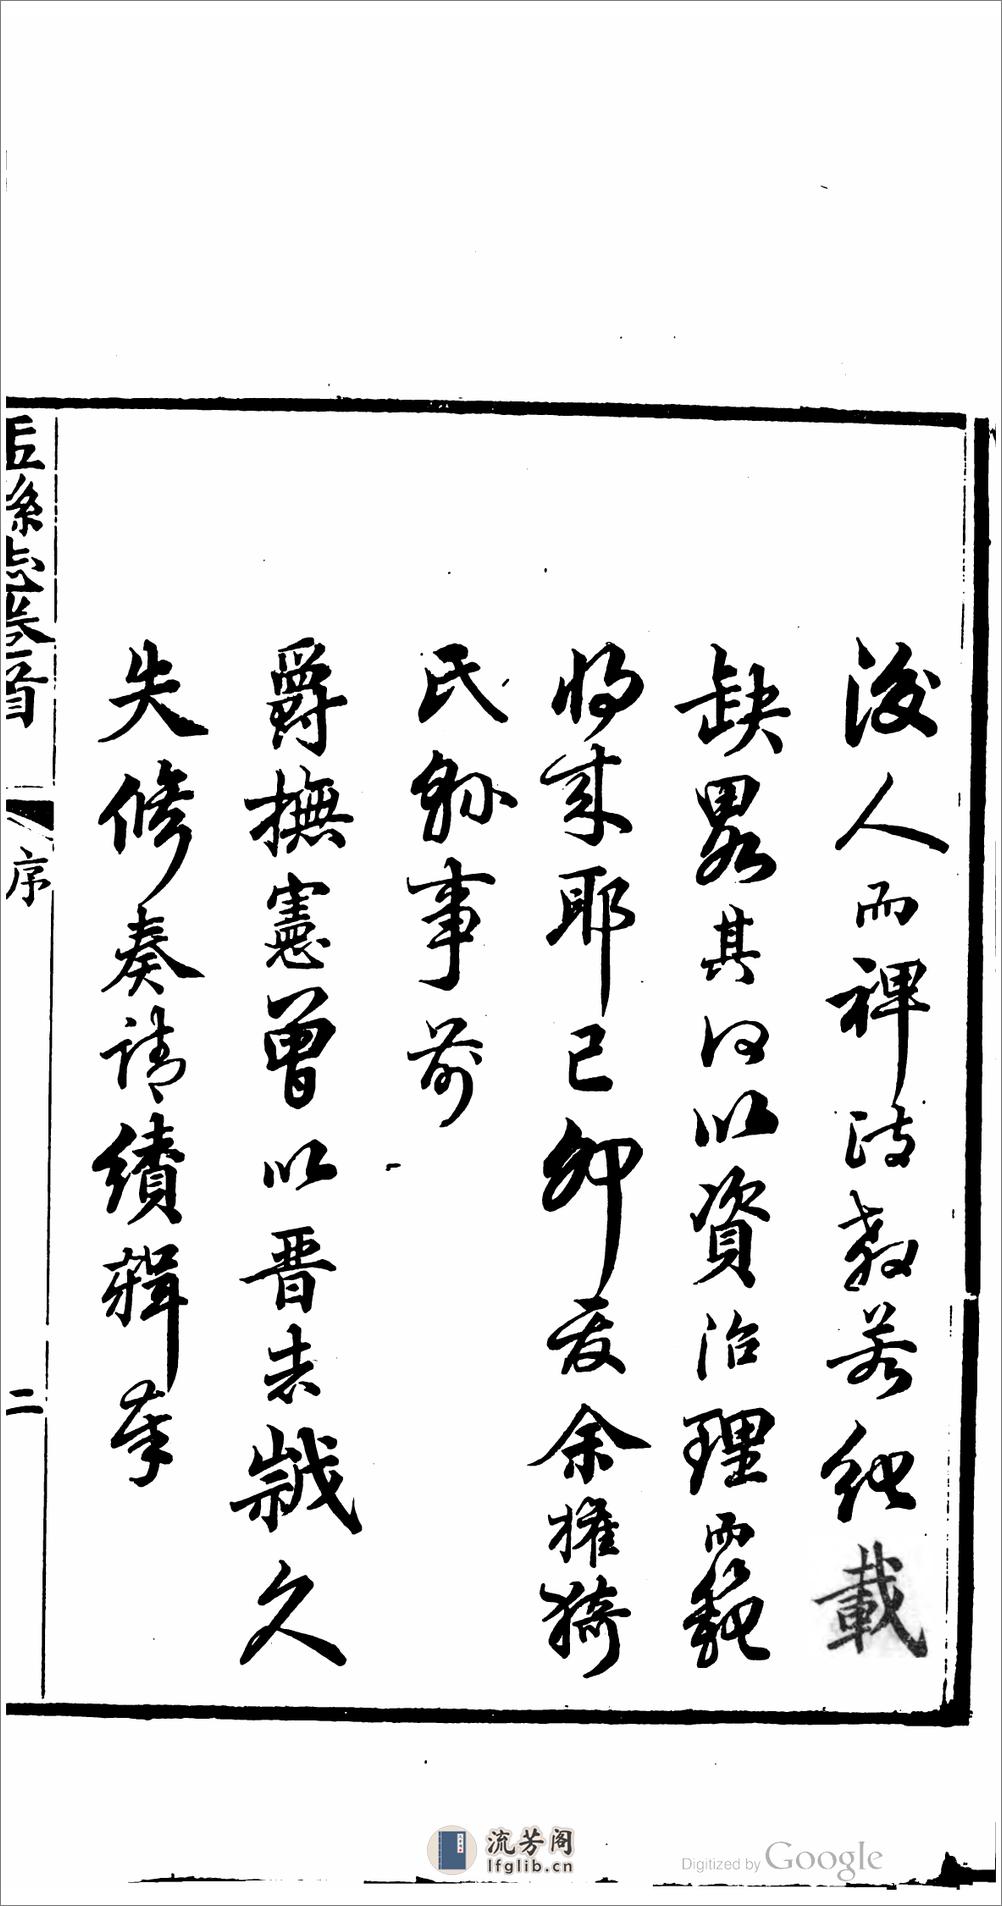 後人而裨政教若紀載
缺畧其何以資治理而範
將來耶己卯夏余權猗
氏縣事前
爵撫憲曾以晋志歲久
失修奏請續輯奉
縣志卷首
序
二
流芳阁
lfglib.cn
Digitized by Google